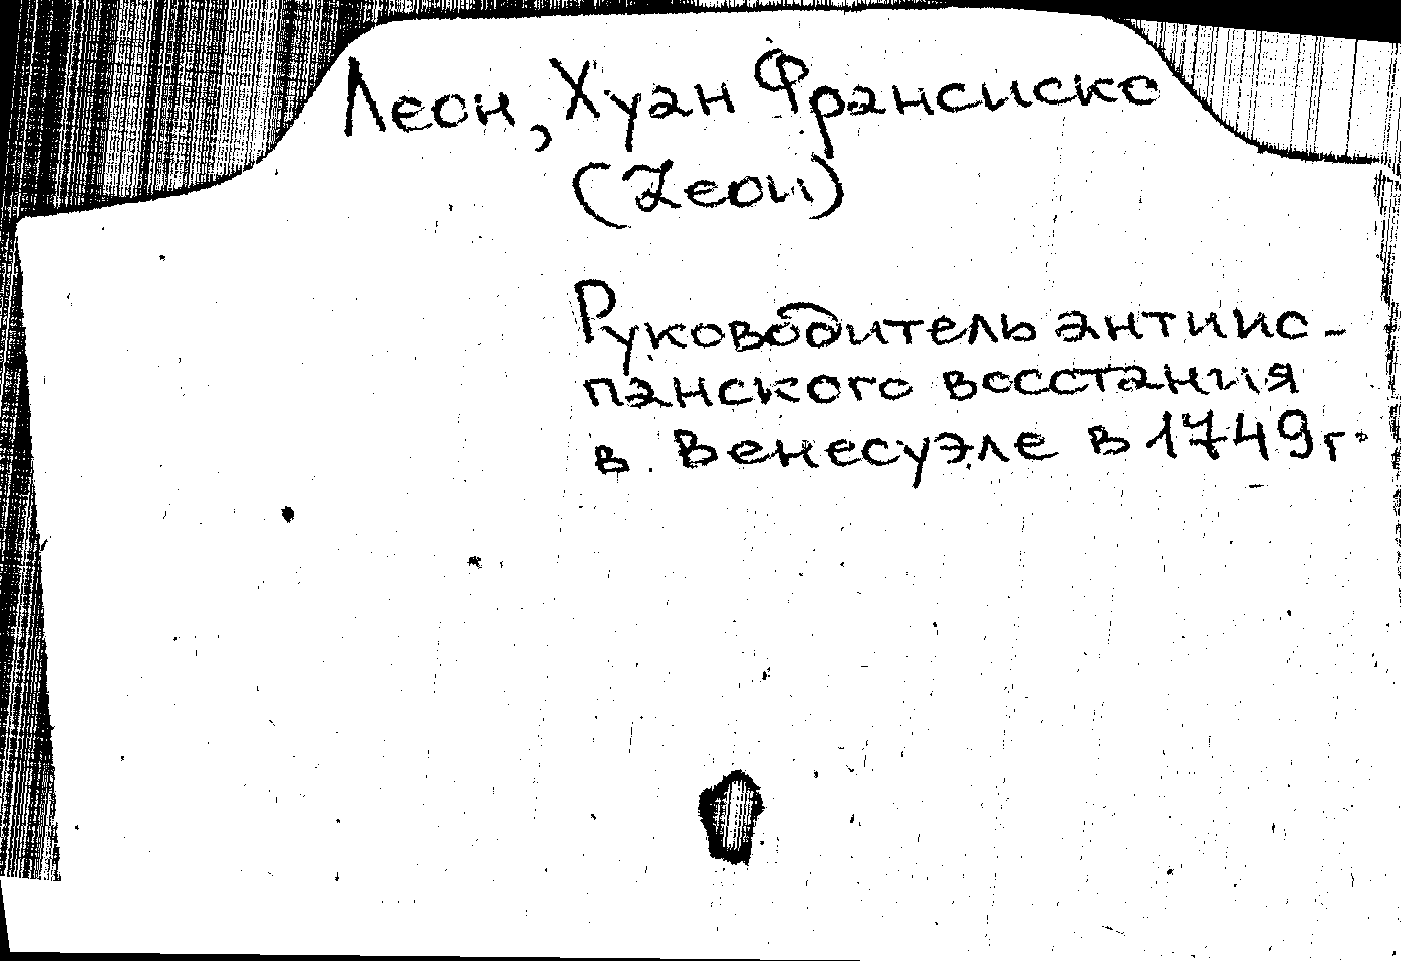 Леон, Хуан Франсиско
(Leon)
Руководитель антиис-
панского восстания
в Венесуэле в 1749 г.